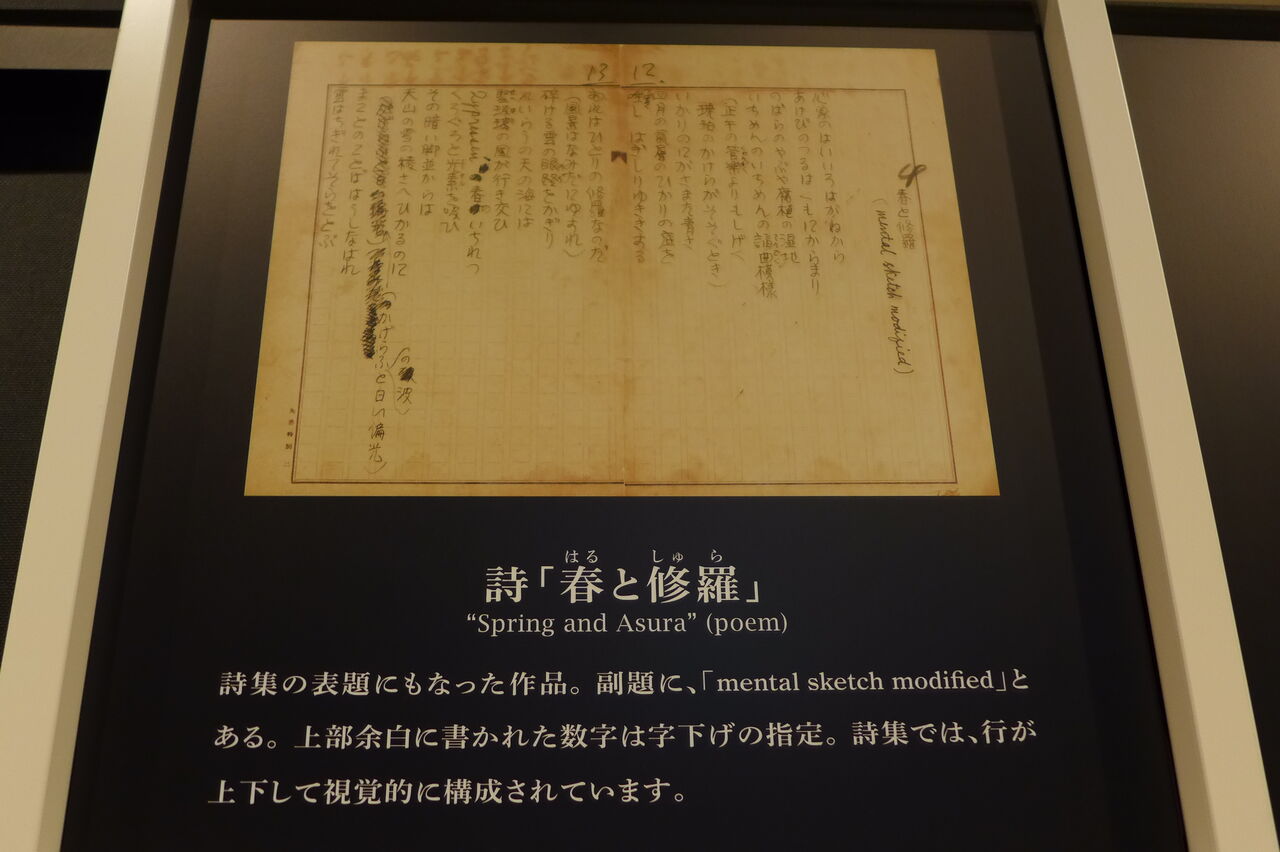 13 12.
春と修羅
(mental sketch modified)
心象のはいいろはがねから
あけびのつるはくもにからまり
のばらのやぶや腐植の湿地
いちめんのいちめんの諂曲模様
(正午の管楽よりもしげく
琥珀のかけらがそそぐとき)
いかりのにがさまた青さ
四月の気層のひかりの底を
唾し はぎしりゆききする
おれはひとりの修羅なのだ
(風景はなみだにゆすれ)
砕ける雲の眼路をかぎり
れいらうの天の海には
聖玻璃の風が行き交ひ
Zypressen 春のいちれつ
くろぐろと光素を吸ひ
その暗い脚並からは
天山の雪の稜さへひかるのに
(かげらふの波と白い偏光)
まことのことばはうしなはれ
雲はちぎれてそらをとぶ
はる しゅ ら
詩「春と修羅」
“Spring and Asura” (poem)
詩集の表題にもなった作品。副題に、「mental sketch modified」と
ある。上部余白に書かれた数字は字下げの指定。詩集では、行が
上下して視覚的に構成されています。